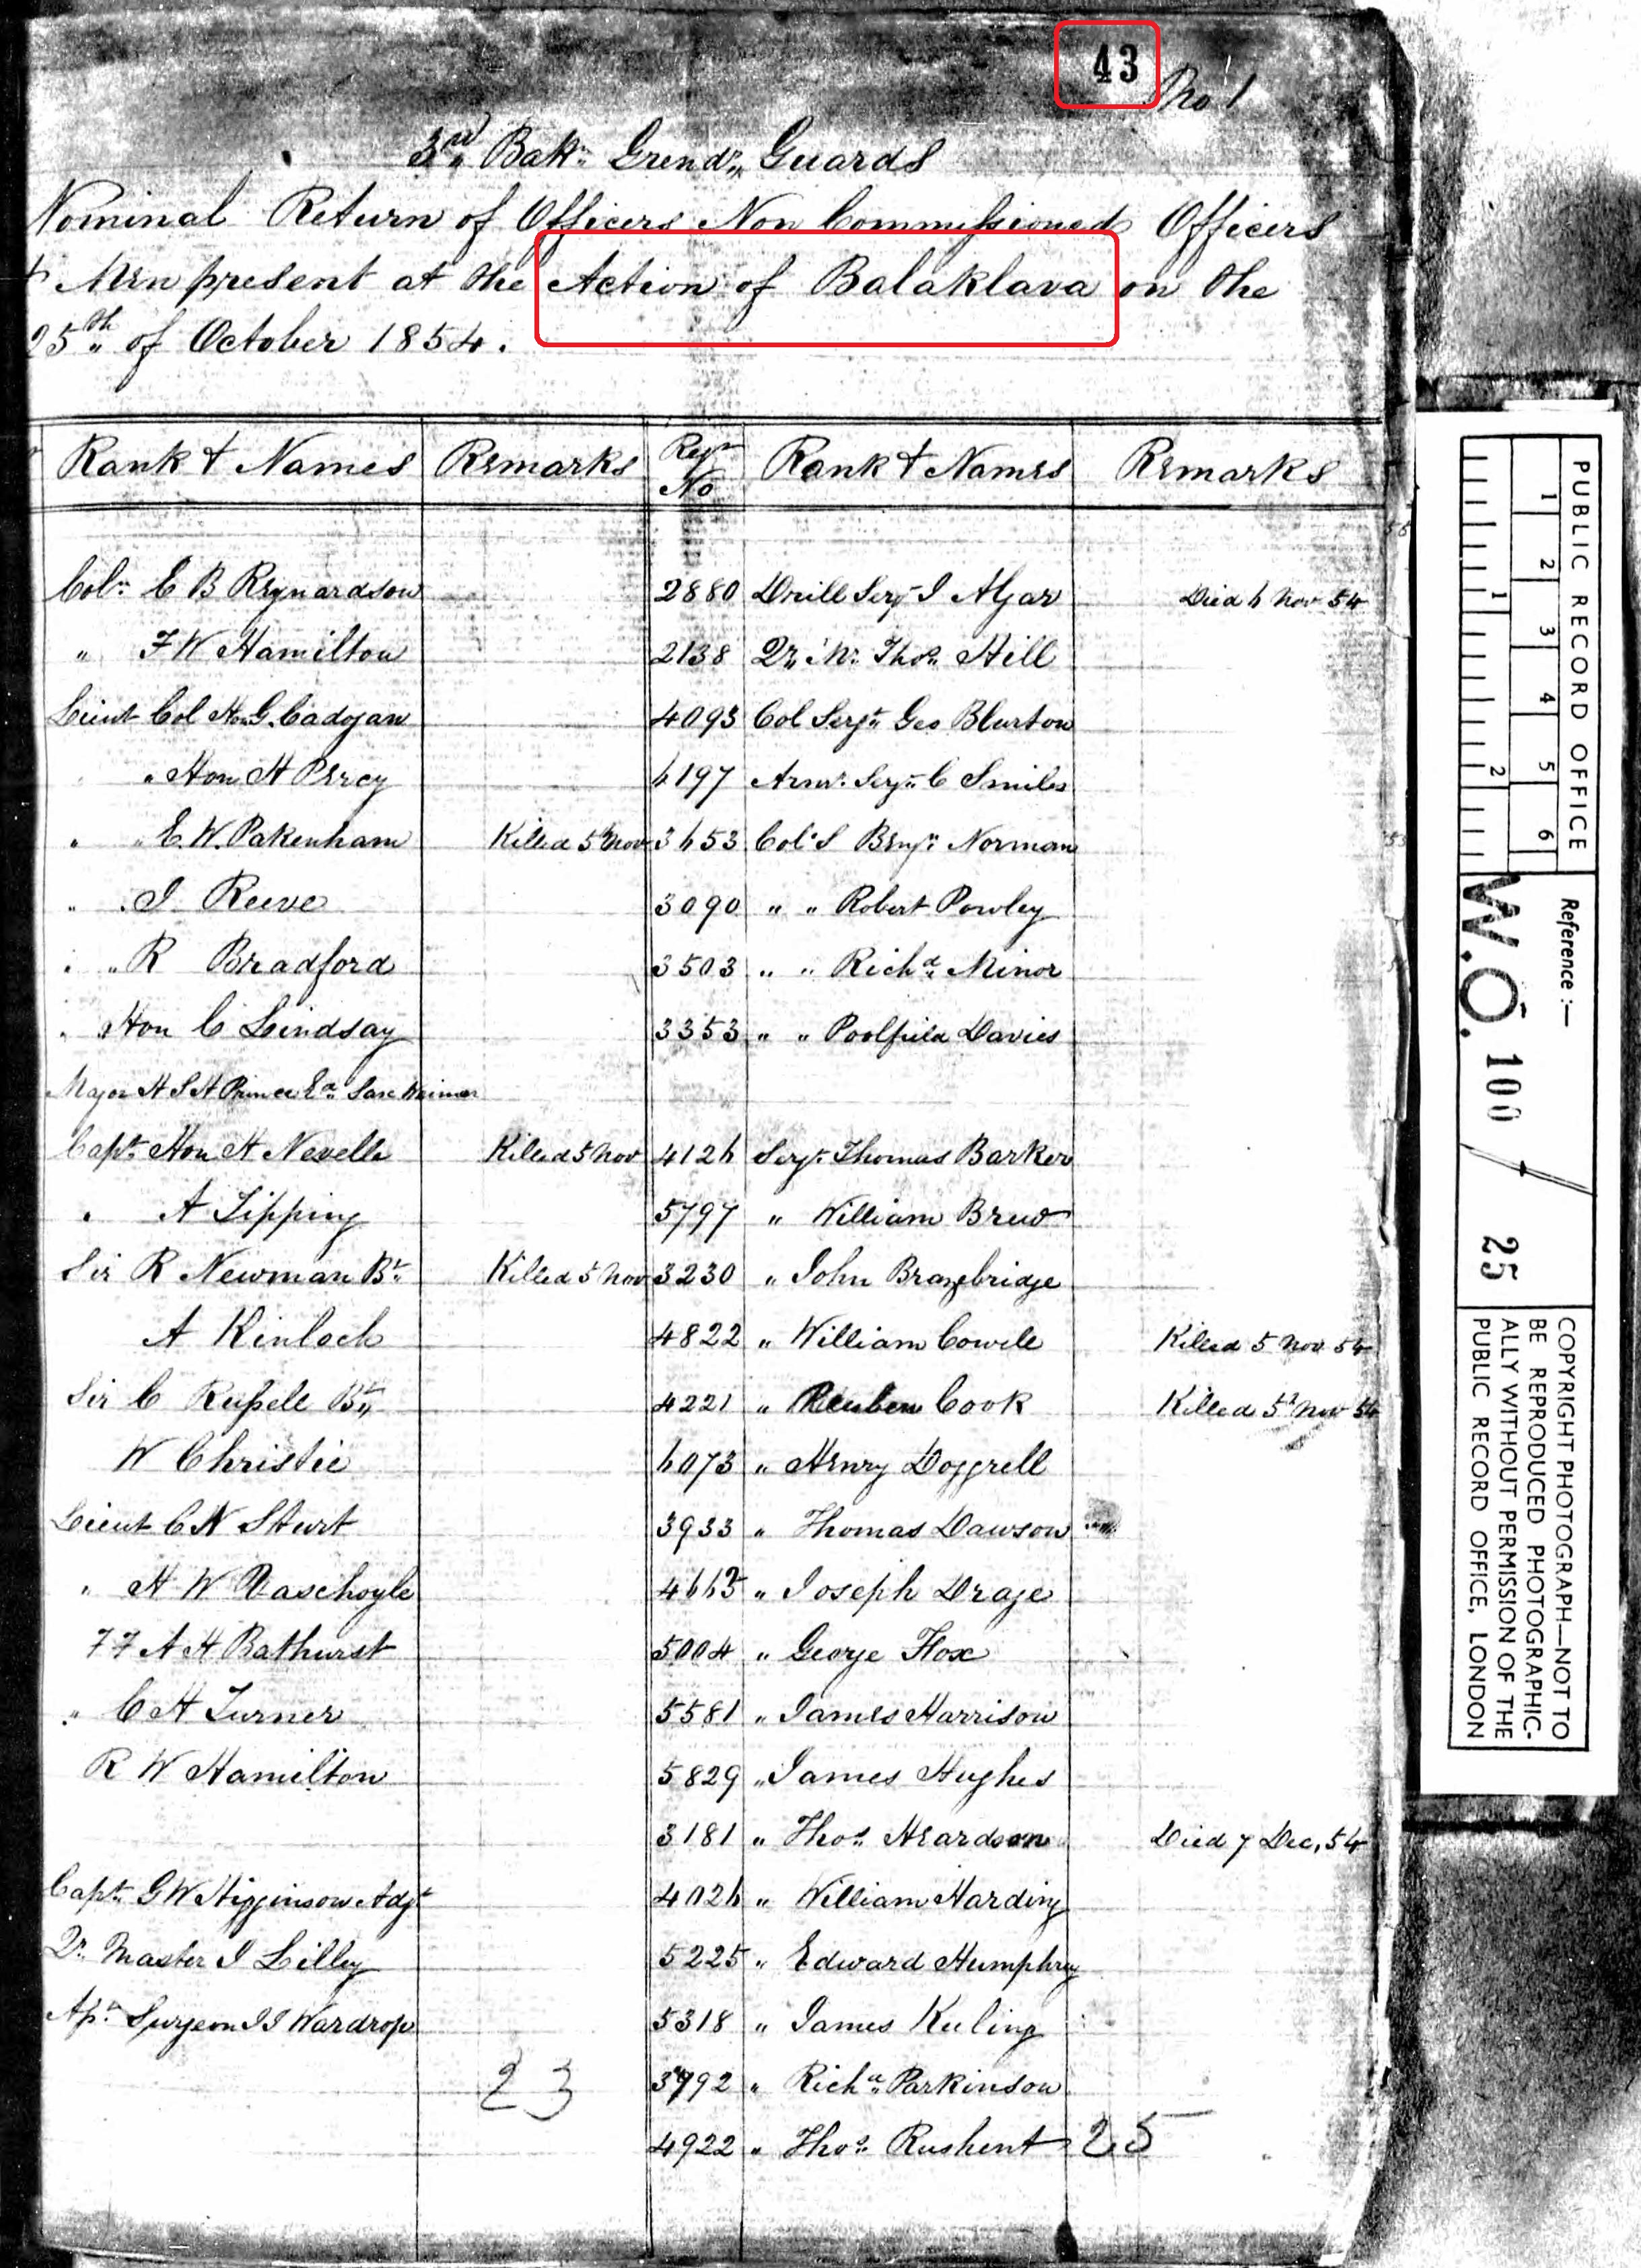 43
No 1
3rd Batn Grendr Guards
Nominal Return of Officers Non Commissioned Officers
& Men present at the Action of Balaklava on the
25th of October 1854.
Rank & Names Remarks Regt No Rank & Names Remarks
Coln C B Reynardson 2880 Drill Sergt I Algar Died 6 Nov 54
" F W Hamilton 2138 Qr Mr Thos Hill
Lieut Col Hon G. Cadogan 4093 Col Sergt Geo Blurton
" Hon H Percy 6197 Armr Sergt C Smiles
" " E. W. Pakenham Killed 5th Nov 3653 Col S Benjn Norman
" " I Reeve 3090 " " Robert Powley
" " R Bradford 3503 " " Richd Minor
" " Hon C Lindsay 3353 " " Poolfield Davies
Major H S H Prince Ed Saxe Weimar
Capt Hon H Nevelle Killed 5 Nov 4126 Sergt Thomas Barker
" A Tipping 5797 " William Brew
Sir R Newman Bt Killed 5 Nov 3230 " John Brazebridge
A Kinloch 4822 " William Cowell Killed 5 Nov 54
Sir C Russell Bt 4221 " Reuben Cook Killed 5th Nov 54
W Christie 6073 " Henry Doggrell
Lieut C N Sturt 3933 " Thomas Dawson
" H W 4663 " Joseph Drage
F T A H Bathurst 5004 " George Fox
" C H Turner 5581 " James Harrison
R W Hamilton 5829 " James Hughes
3181 " Thos Heardson Died 7 Dec, 54
Capt G W Higginson Adjt 4026 " William Harding
Qr Master I Lilley 5225 " Edward Humphrey
Asst Surgeon I I Wardrop 5318 " James Keeling
23 3792 " Richd Parkinson
4922 " Thos Rushent 25
PUBLIC RECORD OFFICE
1 2 3 4 5 6
1 2
Reference :-
W.O. 100 / 25
COPYRIGHT PHOTOGRAPH—NOT TO
BE REPRODUCED PHOTOGRAPHIC-
ALLY WITHOUT PERMISSION OF THE
PUBLIC RECORD OFFICE, LONDON